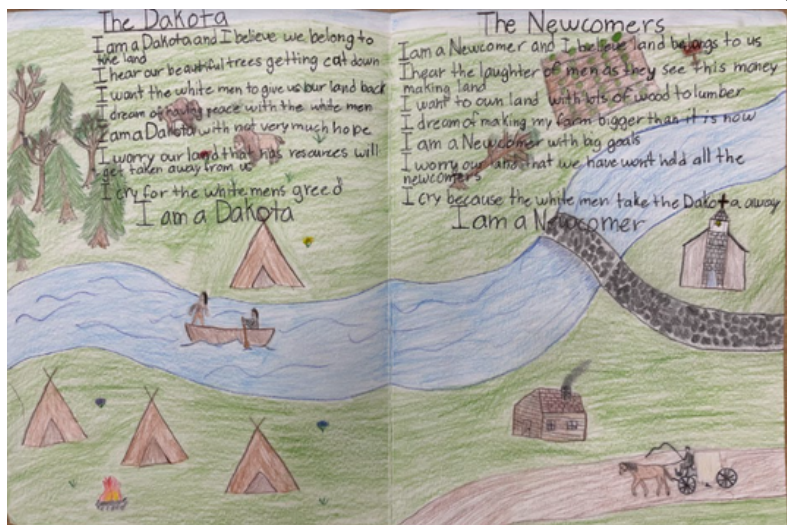 The Dakota
I am a Dakota and I believe we belong to
the land
I hear our beautiful trees getting cat down
I want the white men to give us our land back
I dream of having peace with the white men
I am a Dakota with not very much hope
I worry our land that has resources will
get taken away from us
I cry for the white mens greed
I am a Dakota
The Newcomers
I am a Newcomer and I believe land belongs to us
I hear the laughter of men as they see this money
making land
I want to own land with lots of wood to lumber
I dream of making my farm bigger than it is now
I am a Newcomer with big goals
I worry our land that we have won't hold all the
newcomers
I cry because the white men take the Dakota away
I am a Newcomer